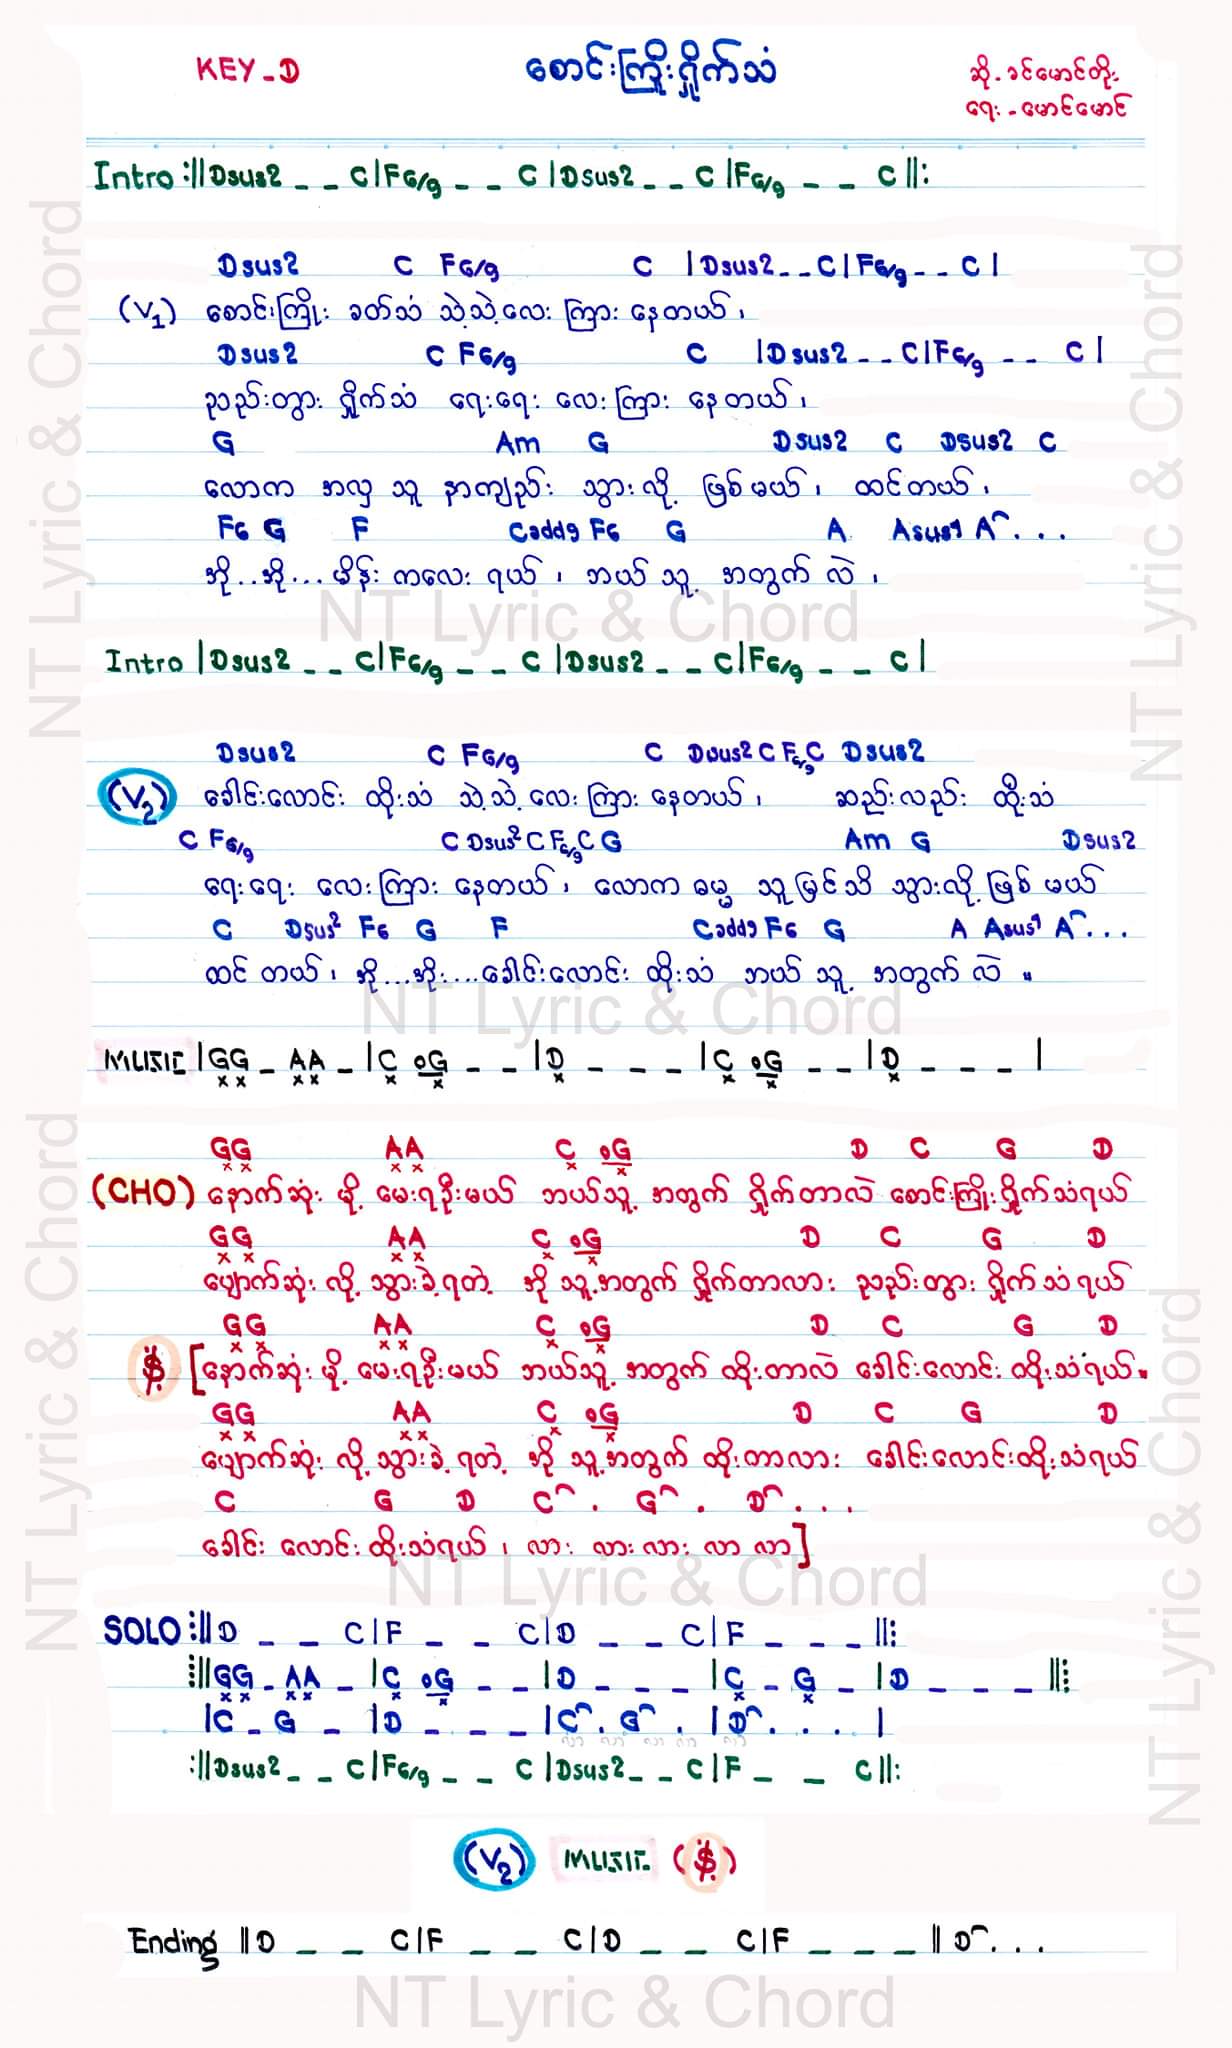 KEY-D
စောင်းကြိုးရှိုက်သံ
ဆို-ခင်မောင်တိုး
ရေး-မောင်မောင်
Intro :||Dsus2 _ _ C|F6/9 _ _ C|Dsus2 _ _ C|F6/9 _ _ C||:
Dsus2 C F6/9 C |Dsus2 _ _ C|F6/9 _ _ C|
(V1) စောင်းကြိုး ခတ်သံ သဲ့သဲ့လေး ကြား နေတယ်၊
Dsus2 C F6/9 C |Dsus2 _ _ C|F6/9 _ _ C|
ညည်းတွား ရှိုက်သံ ရေးရေး လေးကြား နေတယ်၊
G Am G Dsus2 C Dsus2 C
လောက အလှ သူ နာကျည်း သွားလို့ ဖြစ်မယ်၊ ထင်တယ်၊
F6 G F Cadd9 F6 G A Asus4 A⌒...
အို..အို...မိန်းကလေး ရယ်၊ ဘယ်သူ့ အတွက် လဲ၊
Intro |Dsus2 _ _ C|F6/9 _ _ C|Dsus2 _ _ C|F6/9 _ _ C|
Dsus2 C F6/9 C Dsus2 C F6/9 C Dsus2
(V2) ခေါင်းလောင်း ထိုးသံ သဲ့သဲ့လေး ကြား နေတယ်၊ ဆည်းလည်း ထိုးသံ
C F6/9 C Dsus2 C F6/9 C G Am G Dsus2
ရေးရေး လေးကြား နေတယ်၊ လောက ဓမ္မ သူမြင်သိ သွားလို့ ဖြစ် မယ်
C Dsus2 F6 G F Cadd9 F6 G A Asus4 A⌒...
ထင် တယ်၊ အို...အိုး...ခေါင်းလောင်း ထိုးသံ ဘယ်သူ့ အတွက် လဲ ။
MUSIC |GG _ AA _ |C oG _ _ |D _ _ _ |C oG _ _ |D _ _ _ |
GG AA C oG D C G D
(CHO) နောက်ဆုံး မို့ မေးရဦးမယ် ဘယ်သူ့ အတွက် ရှိုက်တာလဲ စောင်းကြိုးရှိုက်သံရယ်
GG AA C oG D C G D
ပျောက်ဆုံး လို့ သွားခဲ့ရတဲ့ အို သူ့အတွက် ရှိုက်တာလား ညည်းတွား ရှိုက်သံရယ်
GG AA C oG D C G D
$ [နောက်ဆုံး မို့ မေးရဦးမယ် ဘယ်သူ့ အတွက် ထိုးတာလဲ ခေါင်းလောင်း ထိုးသံရယ်။
GG AA C oG D C G D
ပျောက်ဆုံး လို့ သွားခဲ့ရတဲ့ အို သူ့အတွက် ထိုးတာလား ခေါင်းလောင်းထိုးသံရယ်
C G D C⌒. G⌒. D⌒...
ခေါင်း လောင်း ထိုးသံရယ်၊ လား လားလား လာ လာ]
SOLO :||D _ _ C|F _ _ C|D _ _ C|F _ _ _||:
:||GG _ AA _ |C oG _ _ |D _ _ _ |C _ G _ |D _ _ _||:
|C _ G _ |D _ _ _ |C⌒. G⌒. |D⌒. . . |
လာ လာ လာ လာ လာ
:||Dsus2 _ _ C|F6/9 _ _ C|Dsus2 _ _ C|F _ _ C||:
(V2) MUSIC ($)
Ending ||D _ _ C|F _ _ C|D _ _ C|F _ _ _||D⌒...
NT Lyric & Chord
NT Lyric & Chord
NT Lyric & Chord
NT Lyric & Chord
NT Lyric & Chord
NT Lyric & Chord
NT Lyric & Chord
NT Lyric & Chord